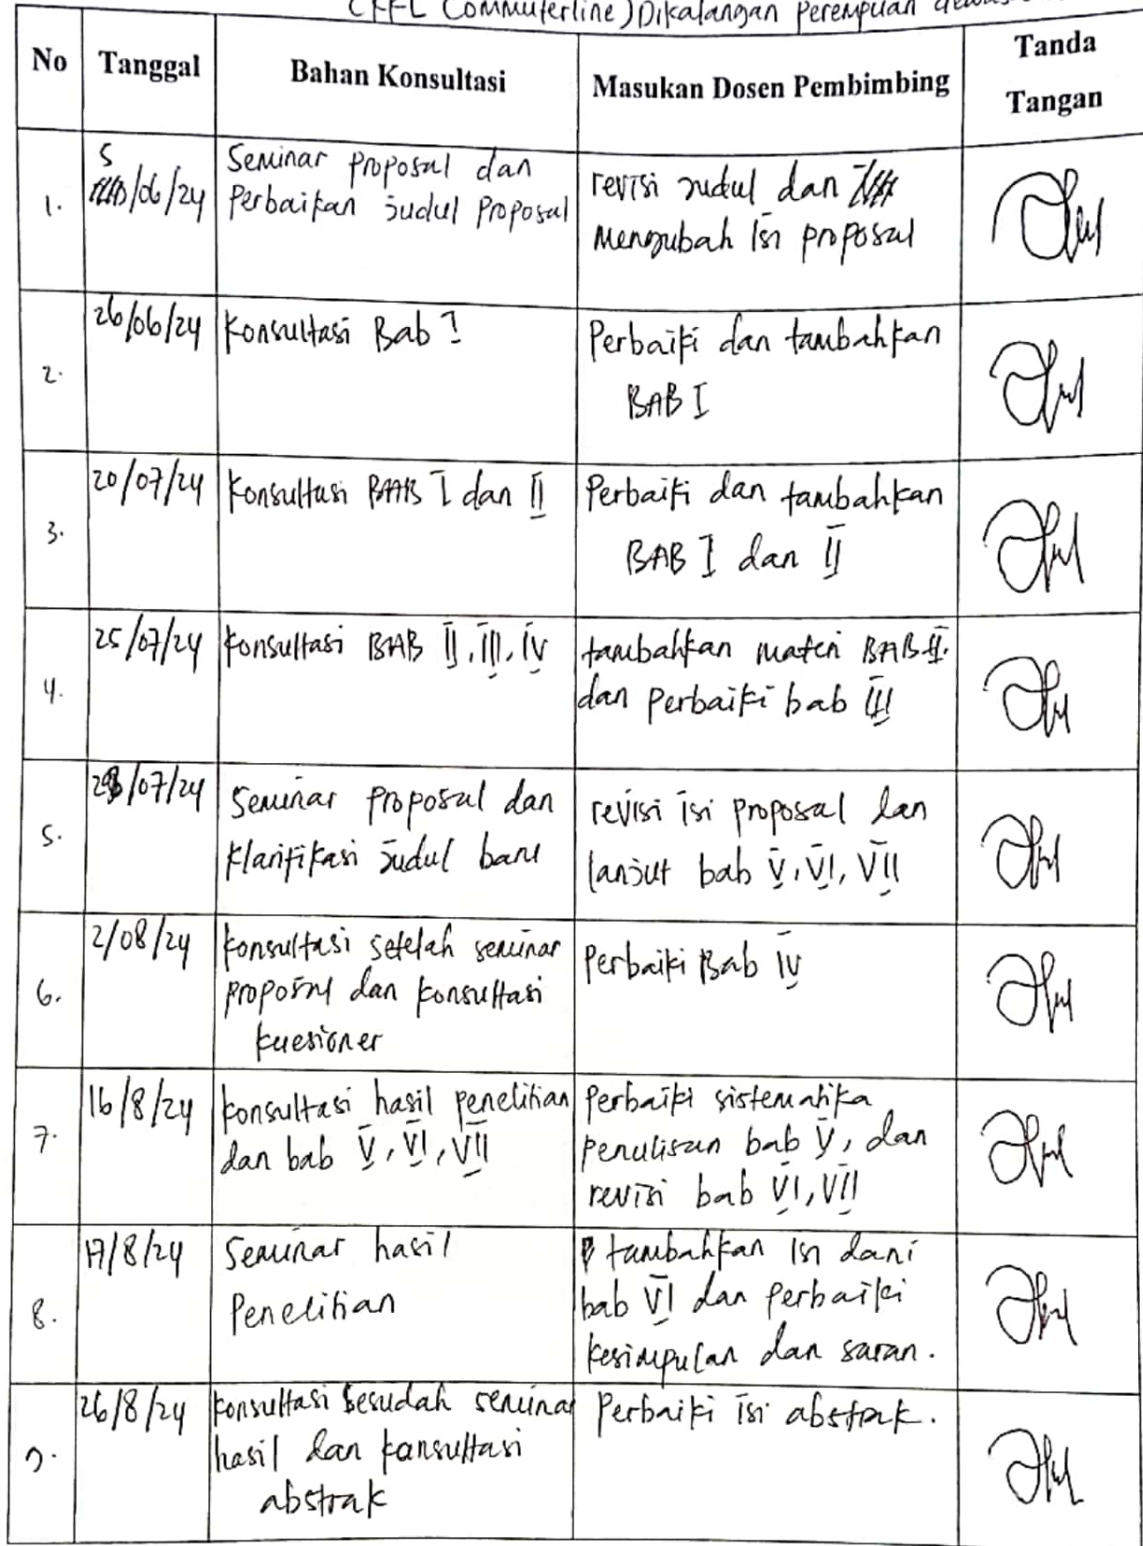 Commuterline) Dikalangan Perempuan
No
Tanggal
Bahan Konsultasi
Masukan Dosen Pembimbing
Tanda
Tangan
1.
5
/06/24
Seminar Proposal dan
Perbaikan Judul Proposal
revisi Judul dan
Mengubah Isi proposal
2.
26/06/24
Konsultasi Bab I
Perbaiki dan tambahkan
BAB I
3.
20/07/24
Konsultasi BAB I dan II
Perbaiki dan tambahkan
BAB I dan II
4.
25/07/24
Konsultasi BAB II, III, IV
tambahkan materi BAB II.
dan Perbaiki bab III
5.
/07/24
Seminar Proposal dan
Klarifikasi Judul baru
revisi isi proposal dan
lanjut bab V, VI, VII
6.
2/08/24
Konsultasi setelah seminar
proposal dan konsultasi
kuesioner
Perbaiki Bab IV
7.
16/8/24
Konsultasi hasil penelitian
dan bab V, VI, VII
Perbaiki sistematika
penulisan bab V, dan
revisi bab VI, VII
8.
17/8/24
Seminar hasil
Penelitian
tambahkan Isi dari
bab VI dan Perbaiki
kesimpulan dan saran.
9.
26/8/24
Konsultasi Sesudah seminar
hasil dan konsultasi
abstrak
Perbaiki isi abstrak.